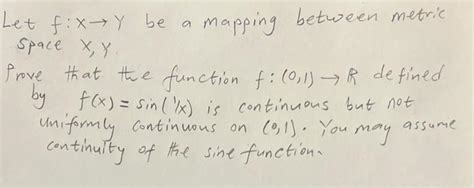 Let f: X → Y be a mapping between metric
space X, Y.
Prove that the function f: (0,1) → R defined
by f(x) = sin(1/x) is continuous but not
uniformly continuous on (0,1). You may assume
continuity of the sine function.